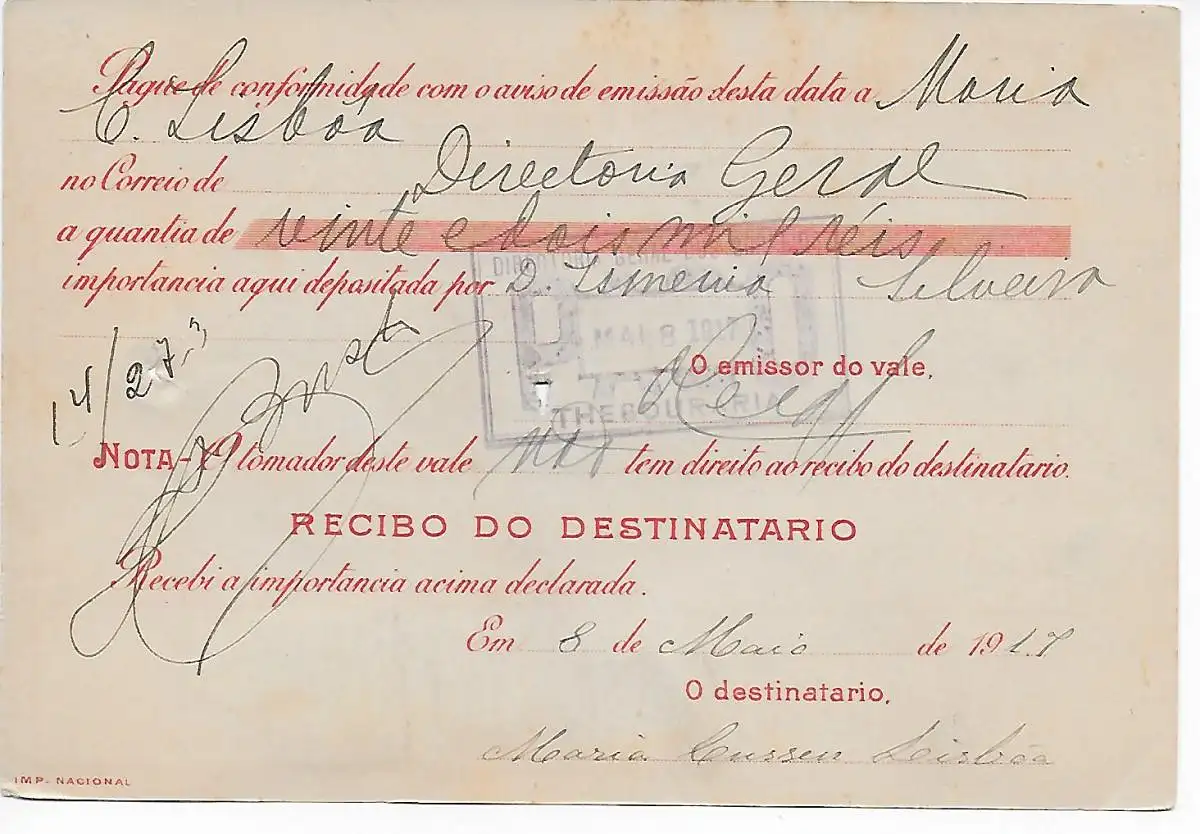 Pague de conformidade com o aviso de emissão desta data a Maria
C. Lisbôa
no Correio de Directoria Geral
a quantia de vinte e dois mil réis
importancia aqui depositada por D. Ismenia Silveira
DIRECTORIA GERAL DOS
MAI 8 1917
THESOURARIA
14/27-3
O emissor do vale,
NOTA - O tomador deste vale não tem direito ao recibo do destinatario.
RECIBO DO DESTINATARIO
Recebi a importancia acima declarada.
Em 8 de Maio de 1917
O destinatario,
Maria Cussen Lisbôa
IMP. NACIONAL